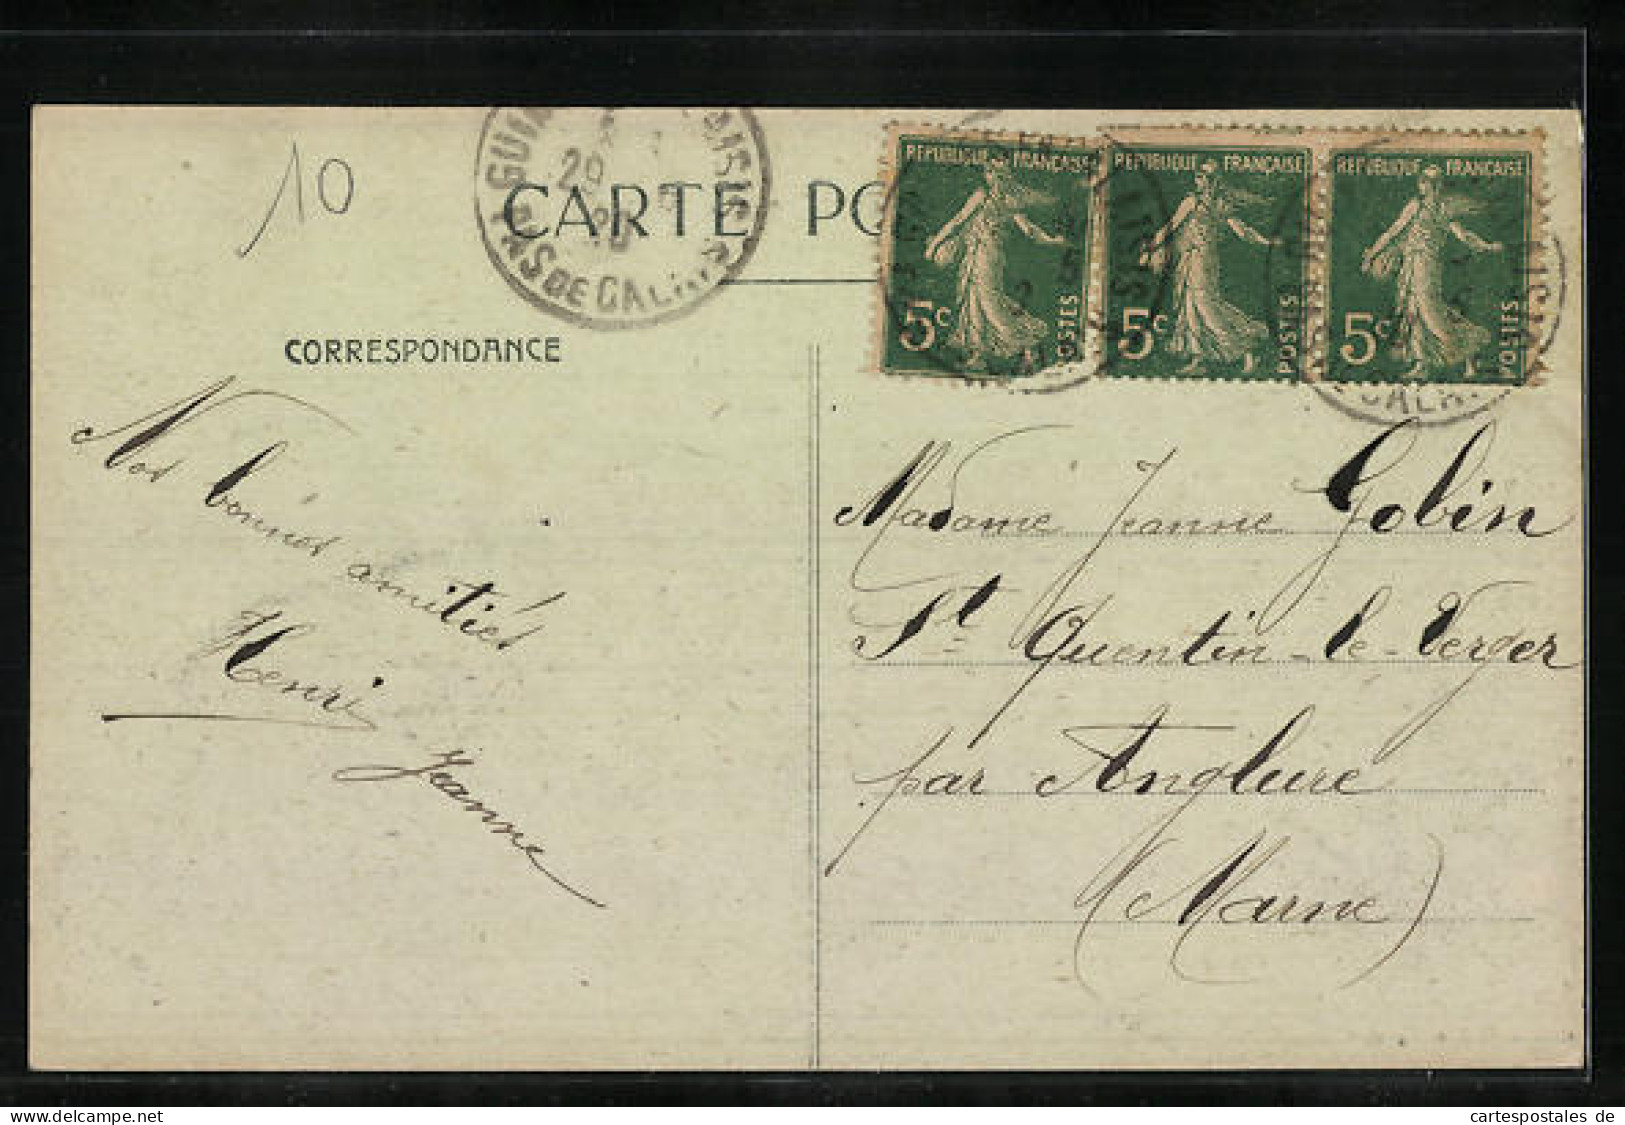 10
CARTE
CORRESPONDANCE
REPUBLIQUE FRANÇAISE
5c
POSTES
REPUBLIQUE FRANÇAISE
5c
POSTES
REPUBLIQUE FRANÇAISE
5c
POSTES
PAS DE CALAIS
20
Nos bonnes amitiés
Henri
Jeanne
Madame Jeanne Gobin
St Quentin-le-Verger
par Anglure
(Marne)
cartespostales de